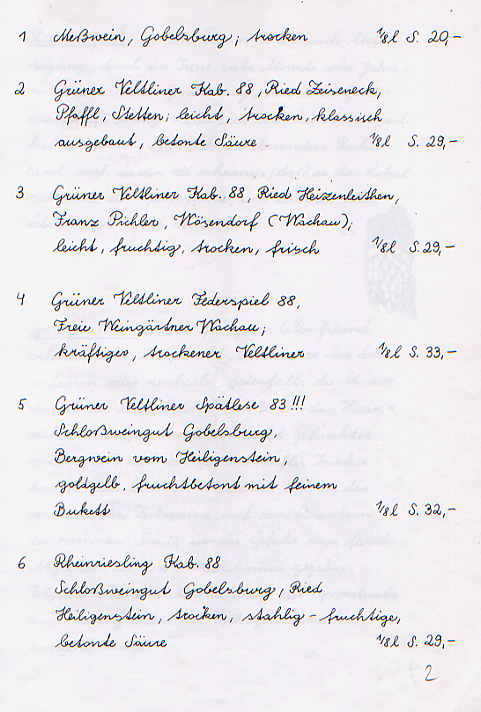 1 Meßwein, Gobelsburg; trocken 1/8 l S. 20,-
2 Grüner Veltliner Kab. 88, Ried Zeiseneck,
Pfaffl, Stetten; leicht, trocken, klassisch
ausgebaut, betonte Säure. 1/8 l S. 29,-
3 Grüner Veltliner Kab. 88, Ried Heizenleithen,
Franz Pichler, Wösendorf (Wachau);
leicht, fruchtig, trocken, frisch 1/8 l S. 29,-
4 Grüner Veltliner Federspiel 88,
Freie Weingärtner Wachau;
kräftiges, trockener Veltliner 1/8 l S. 33,-
5 Grüner Veltliner Spätlese 83!!!
Schloßweingut Gobelsburg,
Bergwein vom Heiligenstein,
goldgelb, fruchtbetont mit feinem
Bukett 1/8 l S. 32,-
6 Rheinriesling Kab. 88
Schloßweingut Gobelsburg, Ried
Heiligenstein, trocken, stahlig-fruchtige,
betonte Säure 1/8 l S. 29,-
2